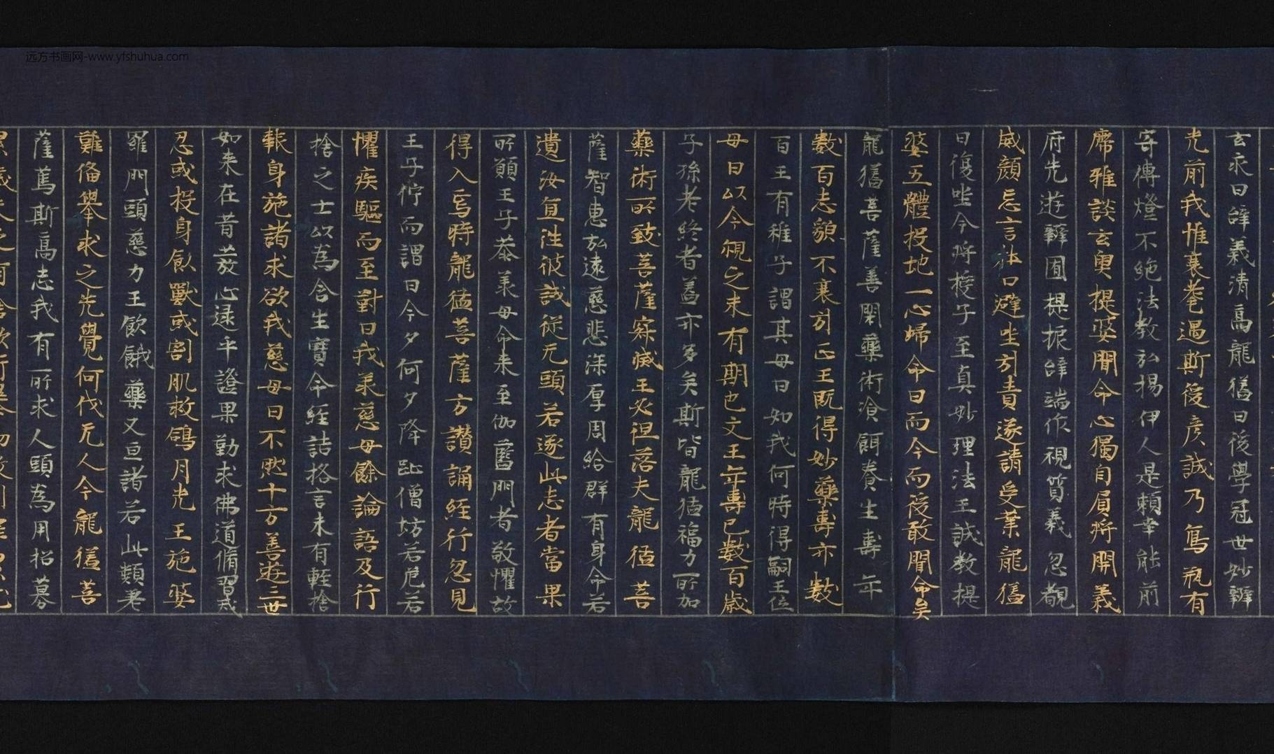 远方书画网-www.yfshuhua.com
玄永曰辞義清高龍猛曰後學冠世妙辯
光前我惟衰耄遇斯俊彥誠乃寫瓶有
寄傳燈不絕法教弘揚伊人是賴幸能前
席雅談玄奧提婆聞命心獨自負將開義
府先遊辯囿提振辭端仰視質義忽覩
威顏忘言杜口避坐引責遂請受業龍猛
曰復坐今將授子至真妙理法王誠教提
婆五體投地一心歸命曰而今而後敢聞命矣
龍猛菩薩善閑藥術飡餌養生壽年
數百志貌不衰引正王既得妙藥壽亦數
百王有稚子謂其母曰如我何時得嗣王位
母曰以今視之未有期也父王年壽已數百歲
子孫老終者蓋亦多矣斯皆龍猛福力所加
藥術所致菩薩寂滅王必殂落夫龍猛菩
薩智惠弘遠慈悲深厚周給群有身命若
遺汝宜往彼試從乞頭若遂此志者當果
所願王子恭承母命來至伽藍門者敬懼故
得入焉時龍猛菩薩方讚誦經行忽見
王子佇而謂曰今夕何夕降趾僧坊若危若
懼疾驅而至對曰我承慈母餘論語及行
捨之士以為含生寶命經誥格言未有輕捨
報身施諸求欲我慈母曰不然十方善逝三世
如來在昔發心逮乎證果勤求佛道脩習戒
忍或投身飤獸或割肌救鴿月光王施婆
羅門頭慈力王飲餓藥叉血諸若此類羌
難備舉求之先覺何代无人今龍猛菩
薩篤斯高志我有所求人頭為用招募